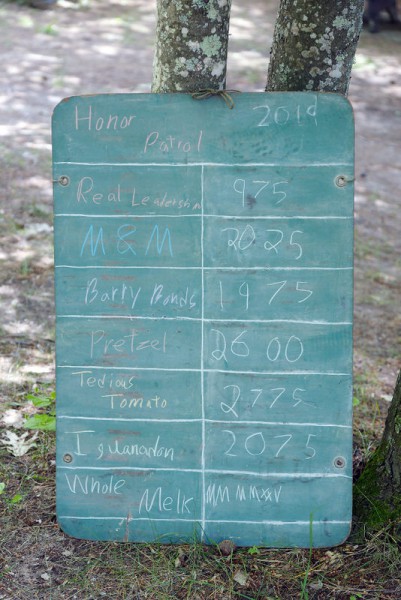 Honor 201d
Patrol
Real Leadership 975
M & M 2025
Barry Bonds 1975
Pretzel 2600
Tedious
Tomato 2775
Iguanadon 2075
Whole
Melk MM MMXXV